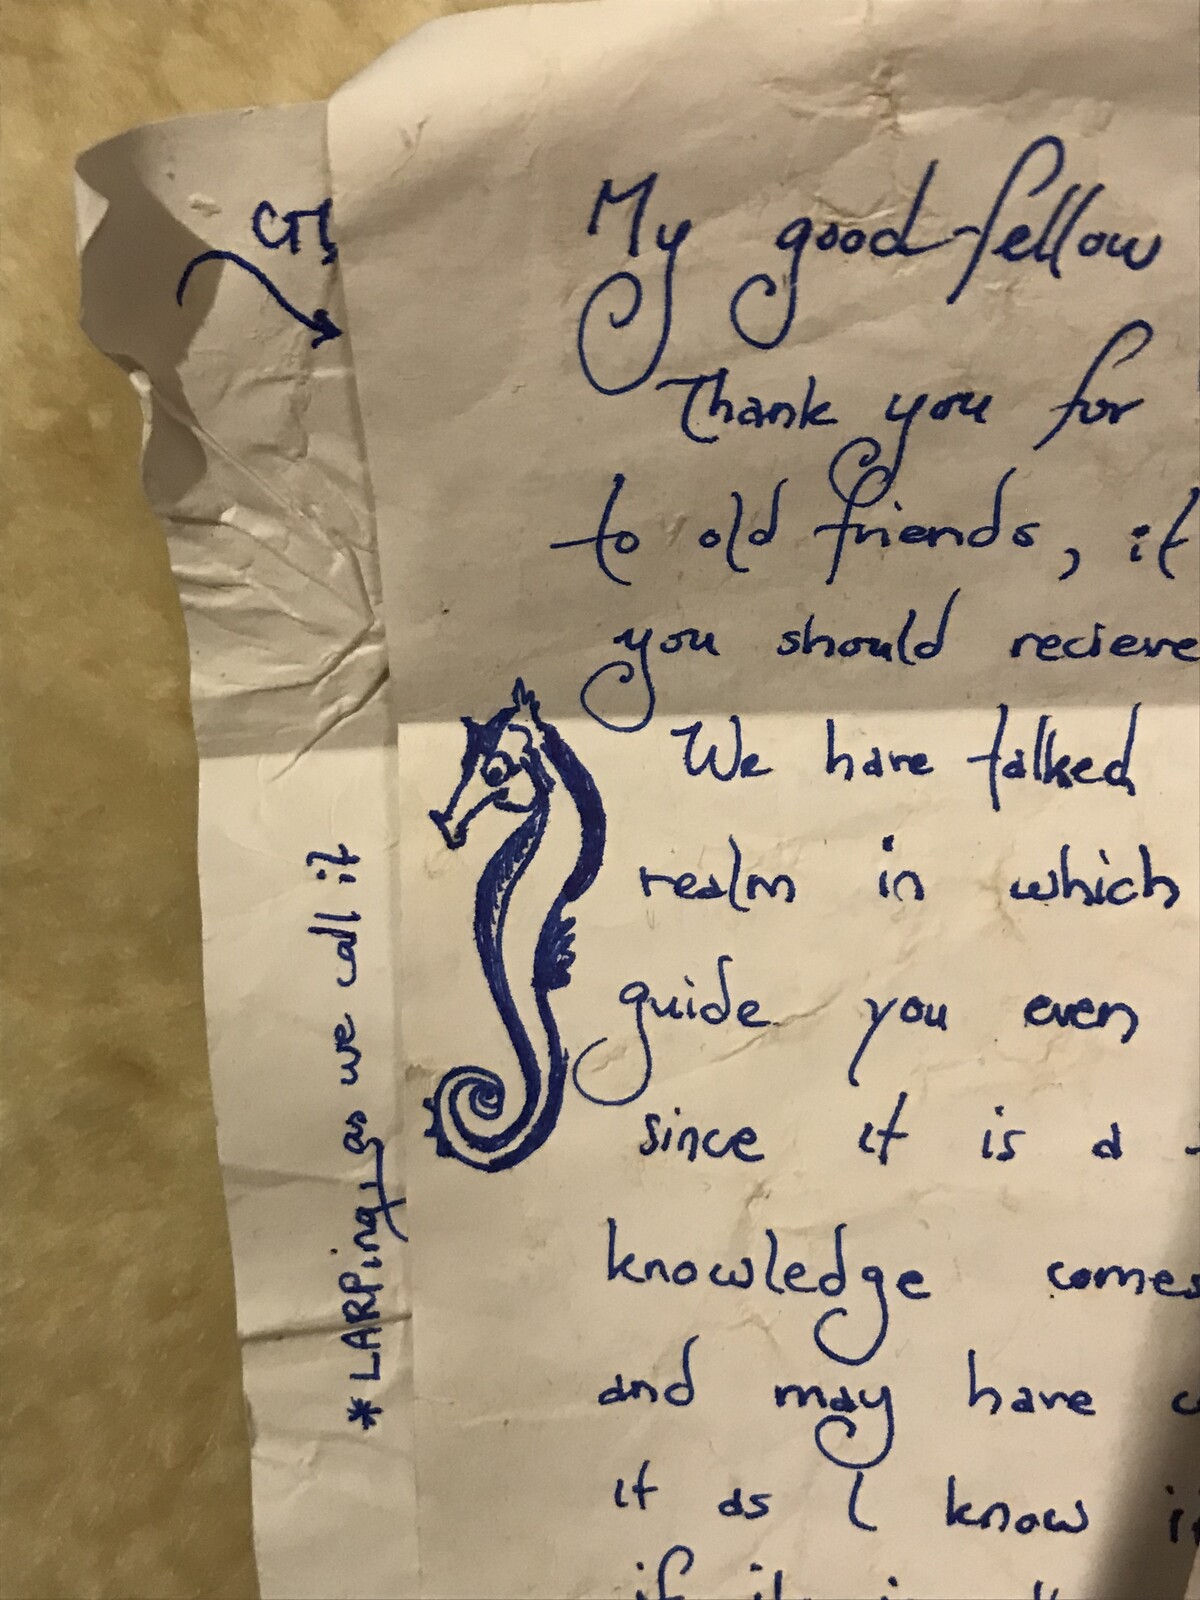 My good fellow
Thank you for
to old friends, it
you should recieve
We have talked
realm in which
guide you even
since it is a
knowledge comes
and may have
it as I know
if
*LARPing as we call it